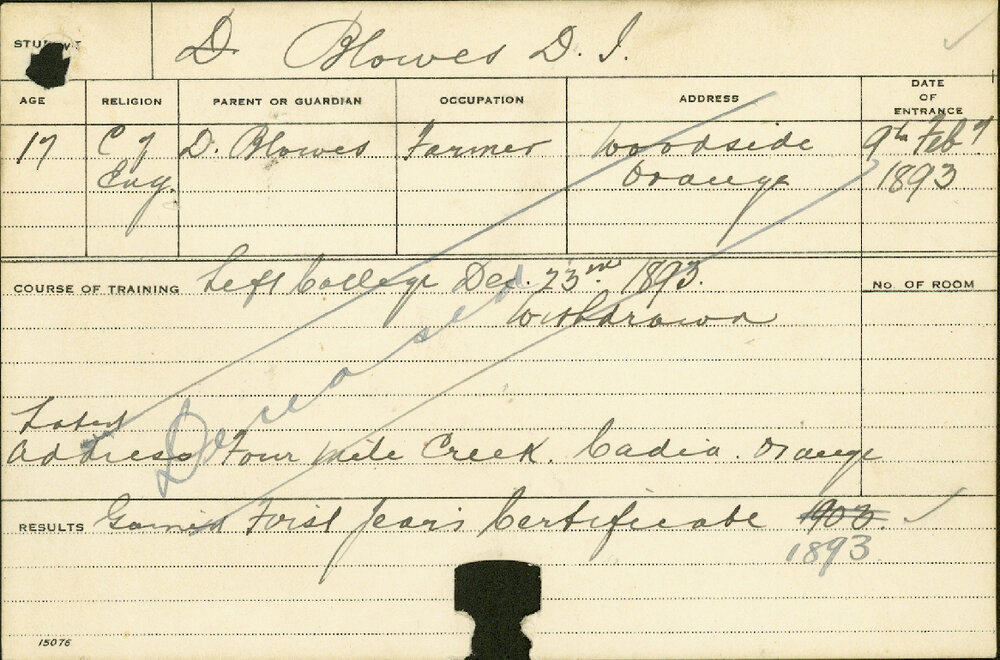 STUDENT D. Blowes D. I.
AGE RELIGION PARENT OR GUARDIAN OCCUPATION ADDRESS DATE OF ENTRANCE
17 C of D. Blowes Farmer Woodside 9th Feby
Eng. Orange 1893
COURSE OF TRAINING Left College Dec. 23rd 1893. No. OF ROOM
Withdrawn
Deceased
Latest
Address Four Mile Creek. Cadia. Orange
RESULTS Gained First Year's Certificate 1903
1893
15076